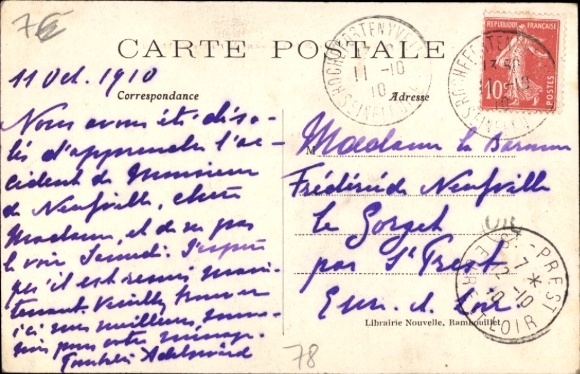 CARTE POSTALE
11 Oct. 1910
Correspondance
Adresse
Nous avons été déso-
lés d'apprendre l'ac-
cident de Monsieur
de Neufville, chère
Madame, et de ne pas
le voir Samedi. J'espère
qu'il est remis main-
tenant. Veuillez trouver
ici nos meilleurs
pour votre ménage.
M
Madame la Baronne
Frédéric de Neufville
Le Gorget
par St Prest
Eure-et-Loir
REPUBLIQUE FRANÇAISE
10
POSTES
ROCHEFORT-EN-YVELINES
11 -10
10
SEINE-ET-OISE
ST-PREST
7 *
12 -10
10
EURE-ET-LOIR
Librairie Nouvelle, Rambouillet
78